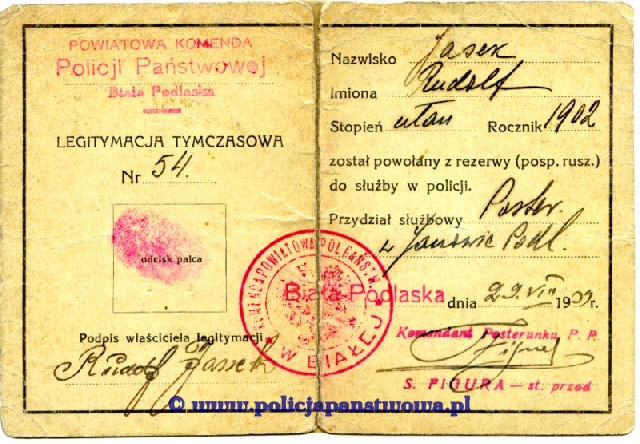 POWIATOWA KOMENDA
Policji Państwowej
Biała Podlaska
LEGITYMACJA TYMCZASOWA
Nr 54.
odcisk palca
Podpis właściciela legitymacji
Rudolf Jasek
Nazwisko Jasek
Imiona Rudolf
Stopień ułan Rocznik 1902
został powołany z rezerwy (posp. rusz.)
do służby w policji.
Przydział służbowy Poster.
z Janowie Podl.
Biała Podlaska dnia 29.VIII 1939r.
KOMENDA POWIATOWA POL. PAŃSTW.
W BIAŁEJ
Komendant Posterunku P. P.
S. FIGURA — st. przod
© www.policjapanstwowa.pl